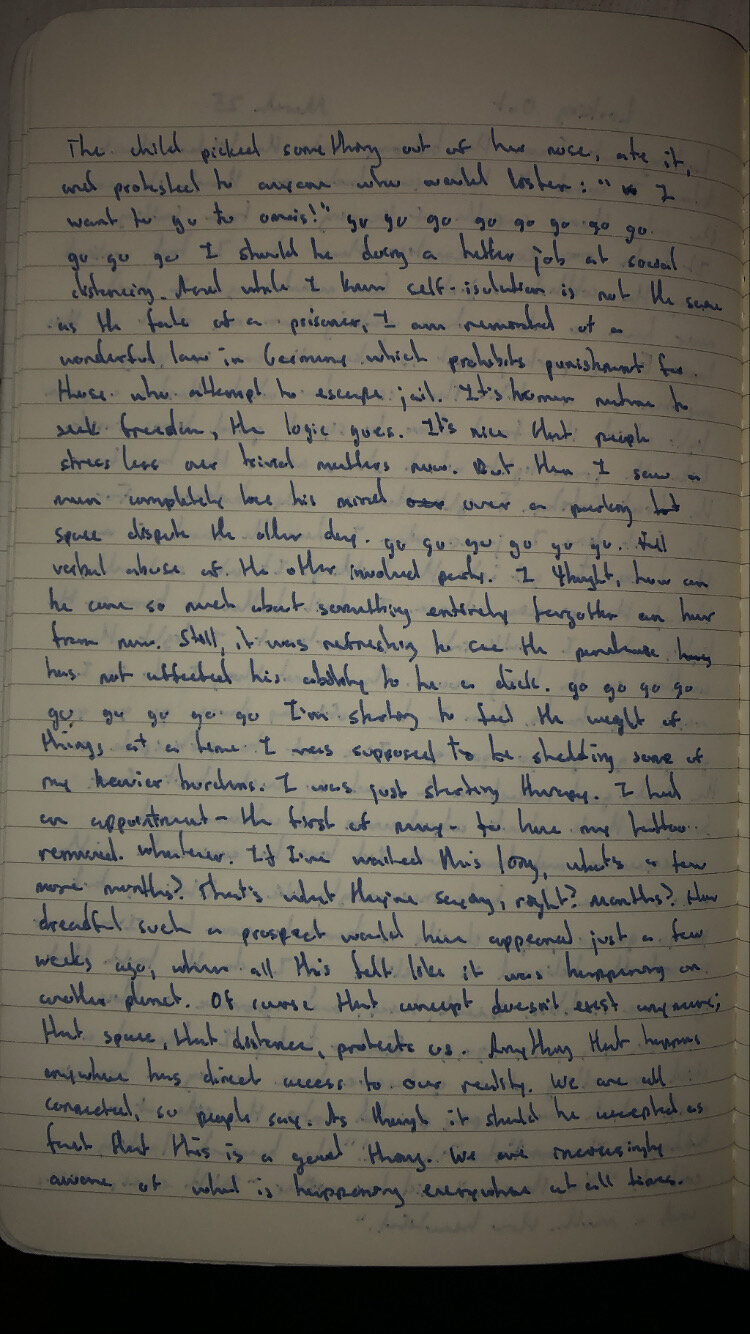 The child picked something out of her nose, ate it,
and protested to anyone who would listen: " I
want to go to omis!" go go go go go go go go
go go go I should be doing a better job at social
distancing. And while I know self-isolation is not the same
as the fate of a prisoner, I am reminded of a
wonderful law in Germany which prohibits punishment for
those who attempt to escape jail. It's human nature to
seek freedom, the logic goes. It's nice that people
stress less over trivial matters now. But then I saw a
man completely lose his mind over a parking
space dispute the other day. go go go go go go. Full
verbal abuse of the other involved party. I thought, how can
he care so much about something entirely forgotten an hour
from now. Still, it was refreshing to see the
has not affected his ability to be a dick. go go go go
go go go go go I'm starting to feel the weight of
things at a time I was supposed to be shedding some of
my heavier burdens. I was just starting therapy. I had
an appointment - the first of many - to have my tattoo
removed. Whatever. If I've waited this long, what's a few
more months? That's what they're saying, right? Months? How
dreadful such a prospect would have appeared just a few
weeks ago, when all this felt like it was happening on
another planet. Of course that concept doesn't exist anymore;
that space, that distance, protects us. Anything that happens
anywhere has direct access to our reality. We are all
connected, so people say. As though it should be accepted as
fact that this is a good thing. We are increasingly
aware of what is happening everywhere at all times.